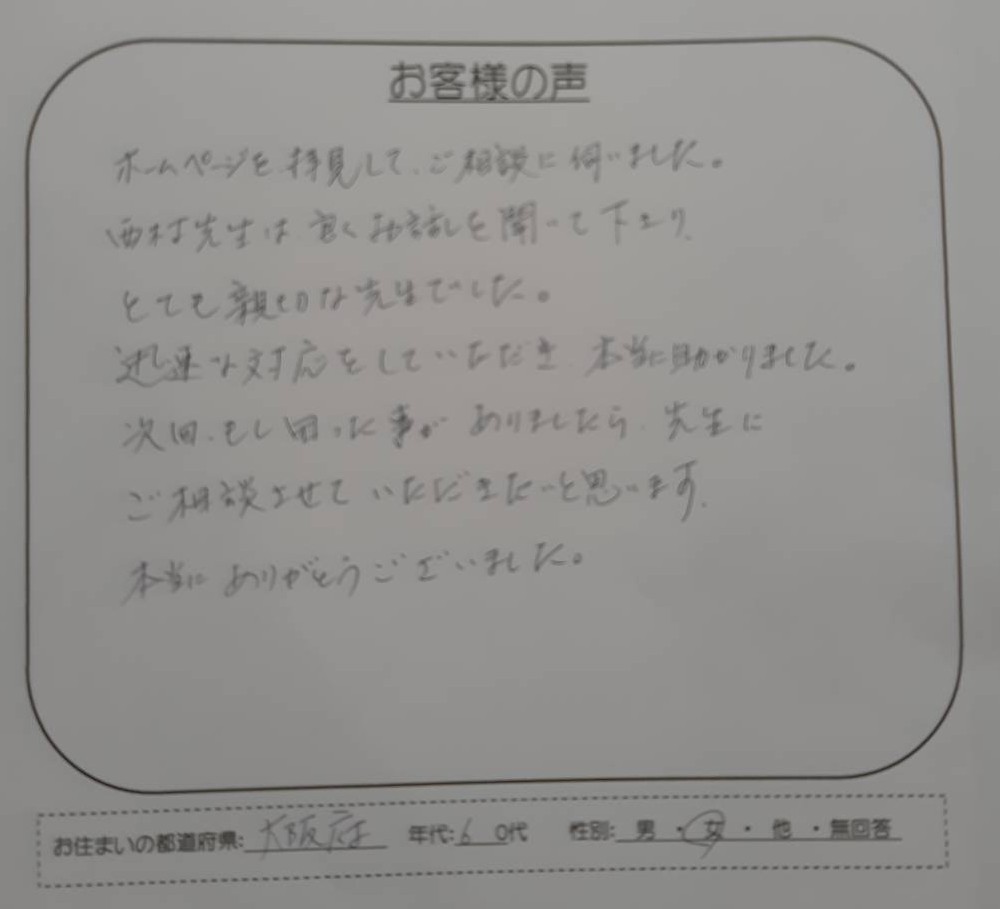 お客様の声
ホームページを拝見して、ご相談に伺いました。
西村先生は良くお話しを聞いて下さり、
とても親切な先生でした。
迅速な対応をしていただき、本当に助かりました。
次回、もし困った事がありましたら、先生に
ご相談させていただきたいと思います。
本当にありがとうございました。
お住まいの都道府県: 大阪府 年代: 6 0代 性別: 男 ・ 女 ・ 他 ・ 無回答